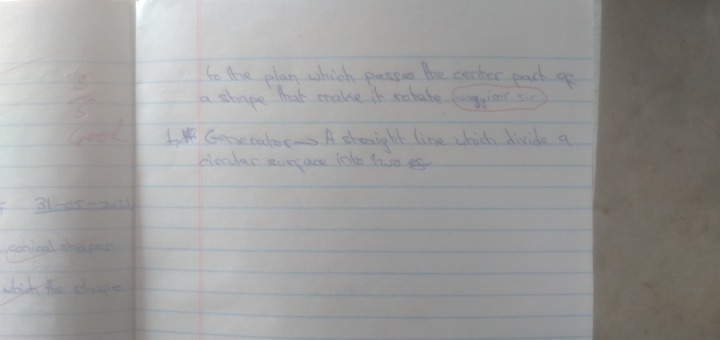 5
5
Good
31-05-2021
conical shapes
which the shape
to the plan which passes the center part of
a shape that make it rotate
b.# Generator → A straight line which divide a
circular surface into two